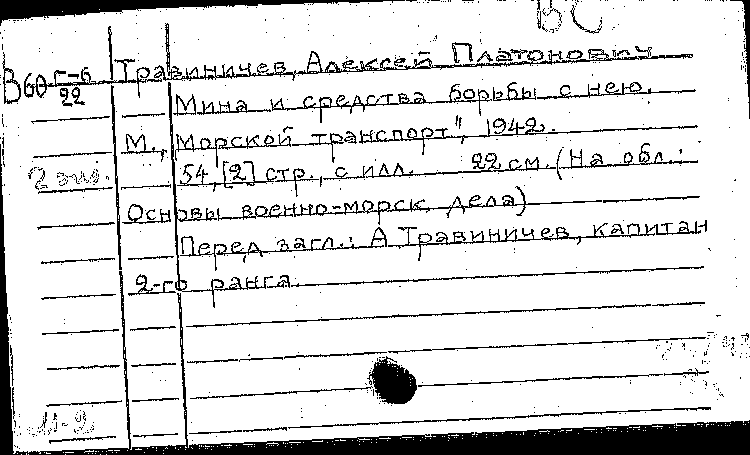 ВС
В60 г-6/22 Травиничев, Алексей Платонович
Мина и средства борьбы с нею.
М., "Морской транспорт", 1942.
2 экз. 54, [2] стр., с илл. 22 см. (На обл.:
Основы военно-морск. дела)
Перед загл.: А Травиничев, капитан
2-го ранга.
11-2